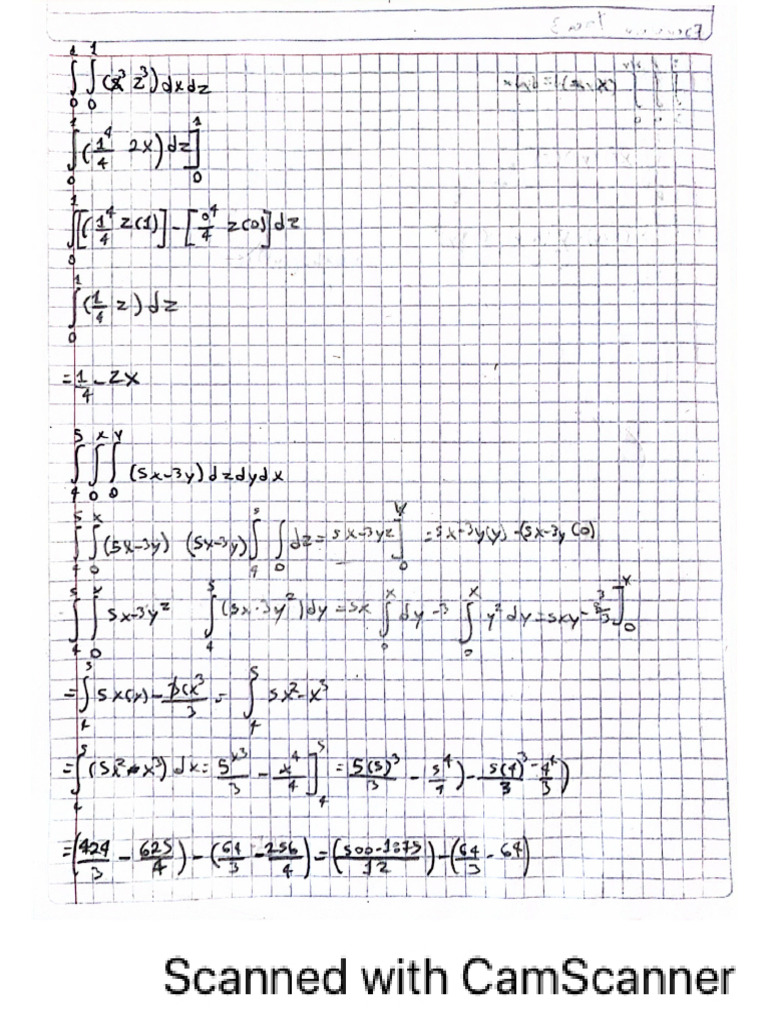 ∫₀¹ ∫₀¹ (x³ z³) dx dz
∫₀¹ (1⁴/4 zx) dz]₀¹
∫₀¹ [(1⁴/4 z(1)] - [0⁴/4 z(0)] dz
∫₀¹ (1/4 z) dz
= 1/4 - zx
∫₄⁵ ∫₀ˣ ∫₀ʸ (5x-3y) dz dy dx
∫₄⁵ ∫₀ˣ (5x-3y) (5x-3y) ∫₄⁵ ∫₀ dz = 5x-3yz]₀ʸ = 5x-3y(y) - (5x-3y(0)
∫₄⁵ ∫₀ˣ 5x-3y² ∫₄⁵ (5x-3y²) dy = 5x ∫₀ˣ dy - 3 ∫₀ˣ y² dy = 5xy - 3/3]₀ˣ
= ∫₄⁵ 5x(x) - 3(x³/3 = ∫₄⁵ 5x² - x³
= ∫₄⁵ (5x² - x³) dx = 5x³/3 - x⁴/4]₄⁵ = 5(5)³/3 - 5⁴/4) - 5(4)³/3 - 4⁴/3)
= (424/3 - 625/4) - (64/3 - 256/4) = (500-1875/12) - (64/3 - 64)
Scanned with CamScanner